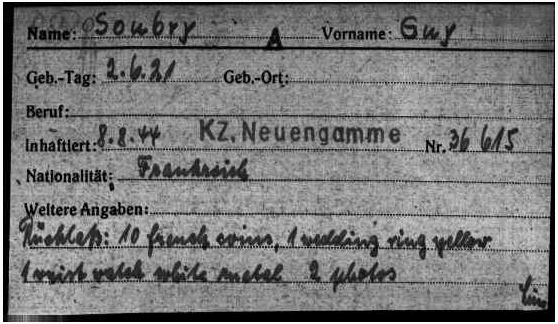 Name: Soubry Vorname: Guy
A
Geb.-Tag: 2.6.21 Geb.-Ort:
Beruf:
Inhaftiert: 8.8.44 KZ. Neuengamme Nr. 36 615
Nationalität: Frankreich
Weitere Angaben:
Rücklaß: 10 french coins, 1 wedding ring yellow
1 wrist watch white metal 2 photos